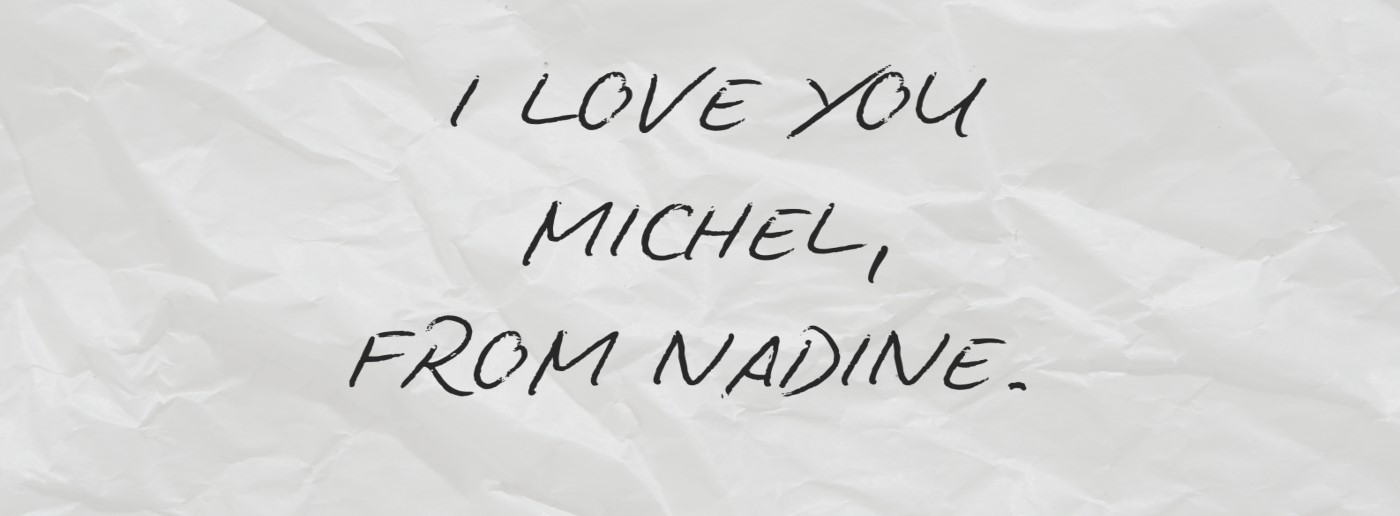 I LOVE YOU
MICHEL,
FROM NADINE.